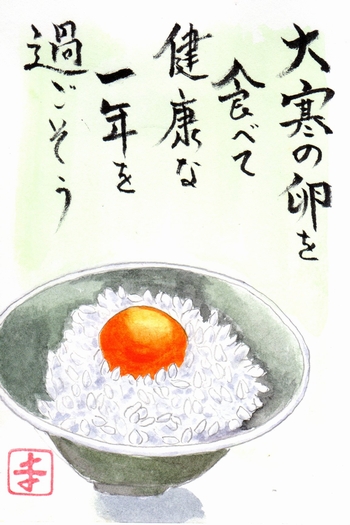 大寒の卵を
食べて
健康な
一年を
過ごそう